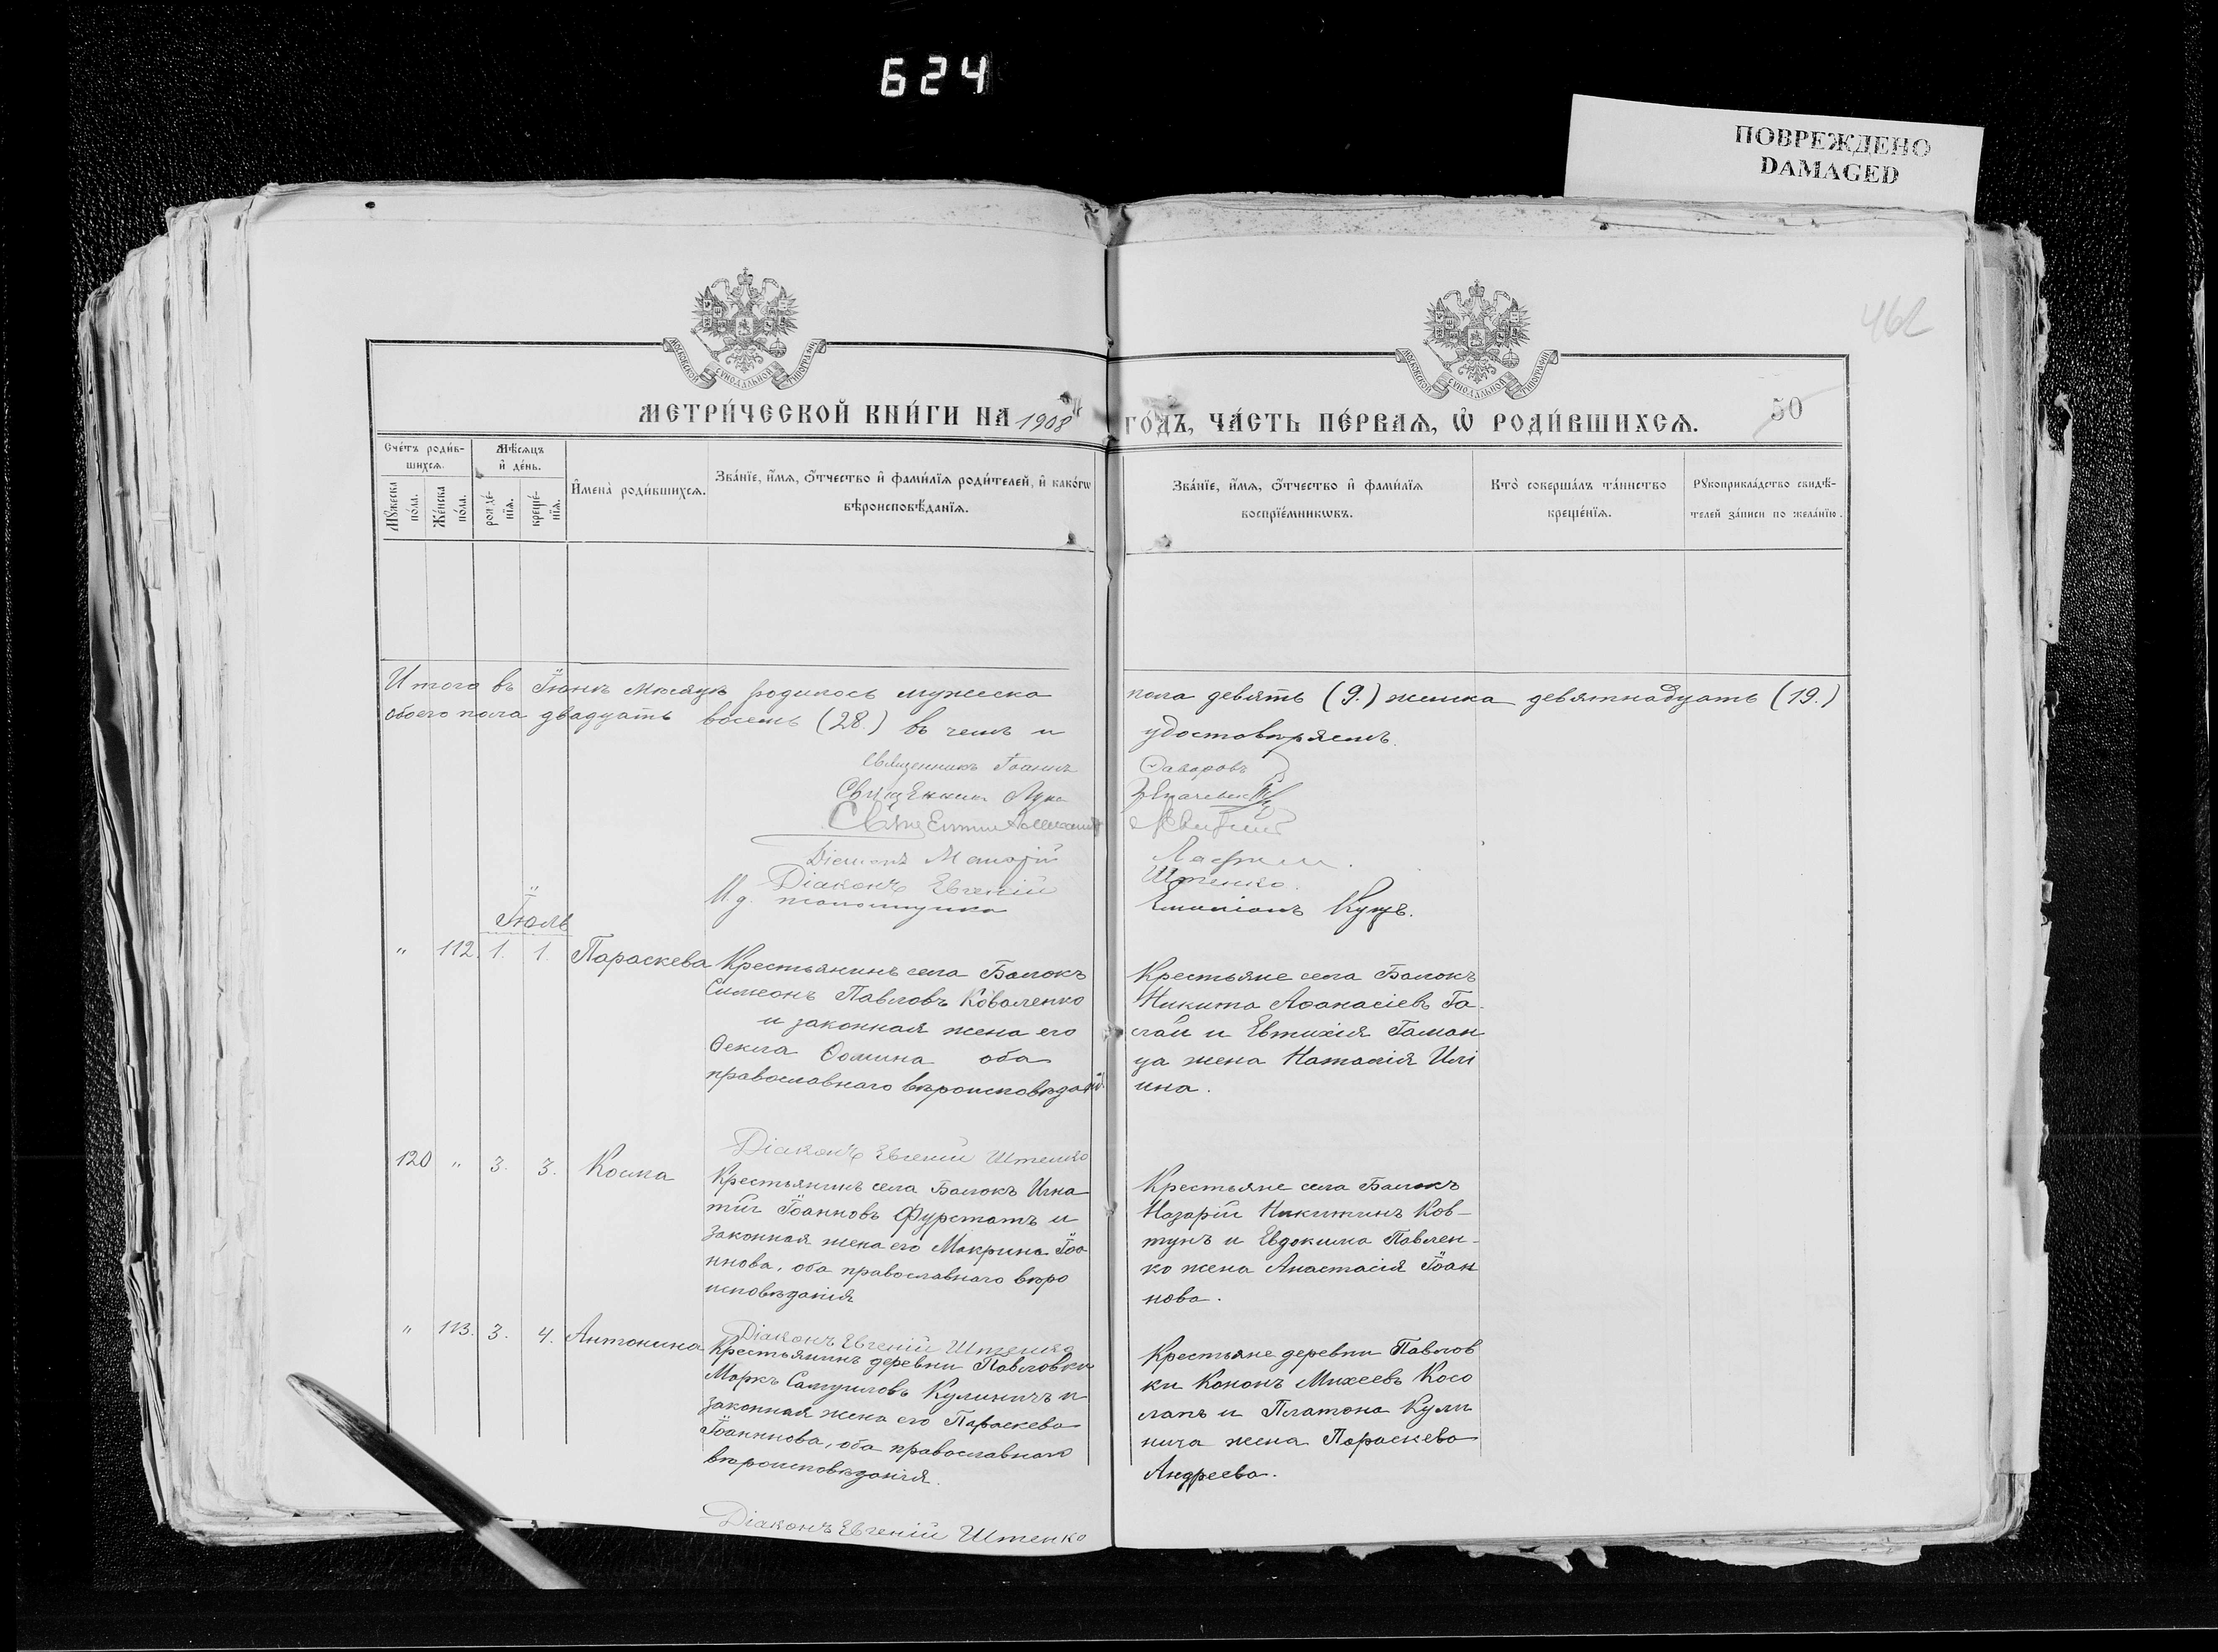 624
ПОВРЕЖДЕНО
DAMAGED
462
МОСКОВСКОЙ СѴНОДАЛЬНОЙ ТИПОГРАФІИ
МОСКОВСКОЙ СѴНОДАЛЬНОЙ ТИПОГРАФІИ
МЕТРИ́ЧЕСКОЙ КНИ́ГИ НА 1908 ГО́ДЪ, ЧА́СТЬ ПЕ́РВАѦ, Ѡ҆ РОДИ́ВШИХСѦ.
50
Сче́тъ роди́в-
шихсѧ.
Мѣ́сѧцъ
и҆ де́нь.
Мꙋ́жеска
по́ла.
Же́нска
по́ла.
рожде́-
нїѧ.
креще́-
нїѧ.
И҆мена̀ роди́вшихсѧ.
Зва́нїе, и҆́мѧ, ѻ҆́тчество и҆ фами́лїѧ роди́телей, и҆ како́гѡ
вѣроисповѣ́данїѧ.
Зва́нїе, и҆́мѧ, ѻ҆́тчество и҆ фами́лїѧ
воспрїе́мникѡвъ.
Кто̀ соверша́лъ та́инство
креще́нїѧ.
Рꙋкоприкла́дство свидѣ́-
телей за́писи по жела́нїю.
Итого въ Іюнѣ мѣсяцѣ родилось мужеска пола девять (9.) женска девятнадцать (19.)
обоего пола двадцать восемь (28.) въ чемъ и удостовѣряемъ.
Священникъ Іоаннъ
Священникъ Лука
Священник
Діаконъ
Діаконъ Евгеній Штенко.
И. д. псаломщика Емиліанъ Куцъ.
Іюль
" 112. 1. 1. Параскева
Крестьянинъ села Балокъ
Симеонъ Павловъ Коваленко
и законная жена его
Ѳекла Ѳомина оба
православнаго вѣроисповѣданія.
Крестьяне села Балокъ
Никита Аѳанасіевъ Га-
лай и Евтихія Гаман
ца жена Наталія Илі
ина.
Діаконъ Евгеній Штенко
120 " 3. 3. Косма
Крестьянинъ села Балокъ Игна
тій Іоанновъ Фурстатъ и
законная жена его Макрина Іоа
ннова, оба православнаго вѣро
исповѣданія
Крестьяне села Балокъ
Назарій Никитинъ Ков-
тунъ и Евдокима Павлен-
ко жена Анастасія Іоан
нова.
Діаконъ Евгеній Штенко
" 113. 3. 4. Антонина
Крестьянинъ деревни Павловки
Маркъ Самуиловъ Кулиничъ и
законная жена его Параскева
Іоаннова, оба православнаго
вѣроисповѣданія.
Крестьяне деревни Павлов
ки Кононъ Михеевъ Косо
лапъ и Платона Кули
нича жена Параскева
Андреева.
Діаконъ Евгеній Штенко